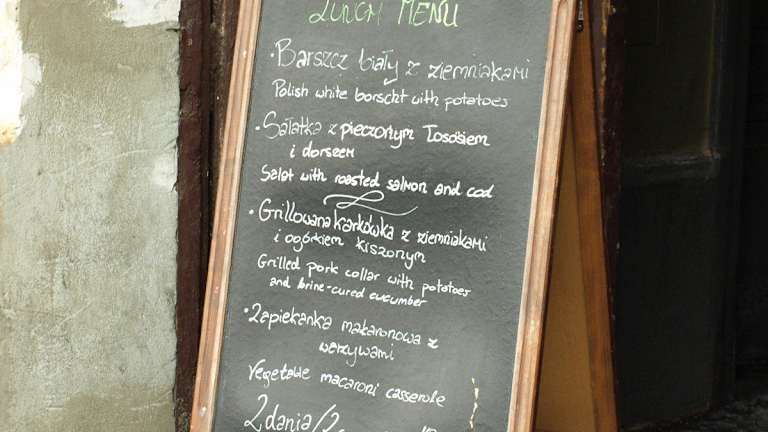 LUNCH MENU
• Barszcz biały z ziemniakami
Polish white borscht with potatoes
• Sałatka z pieczonym łososiem
i dorszem
Salat with roasted salmon and cod
• Grillowana karkówka z ziemniakami
i ogórkiem kiszonym
Grilled pork collar with potatoes
and brine-cured cucumber
• Zapiekanka makaronowa z
warzywami
Vegetable macaroni casserole
2 dania/2